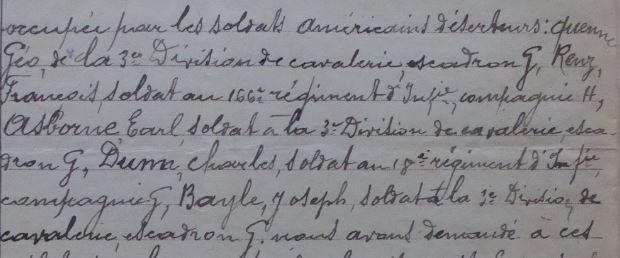 occupée par les soldats américains déserteurs: quenne
Géo, de la 3e Division de cavalerie, escadron G, Renz,
François soldat au 166e régiment d'Infie, compagnie H,
Asborne, Earl, soldat à la 3e Division de cavalerie, esca-
dron G, Dumm, charles, soldat au 18e régiment d'Infie,
compagnie G, Bayle, Joseph, soldat à la 3e Division, de
cavalerie, escadron G. nous avons demandé à ces